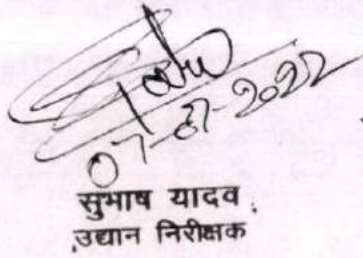 07-07-2022
सुभाष यादव
उद्यान निरीक्षक